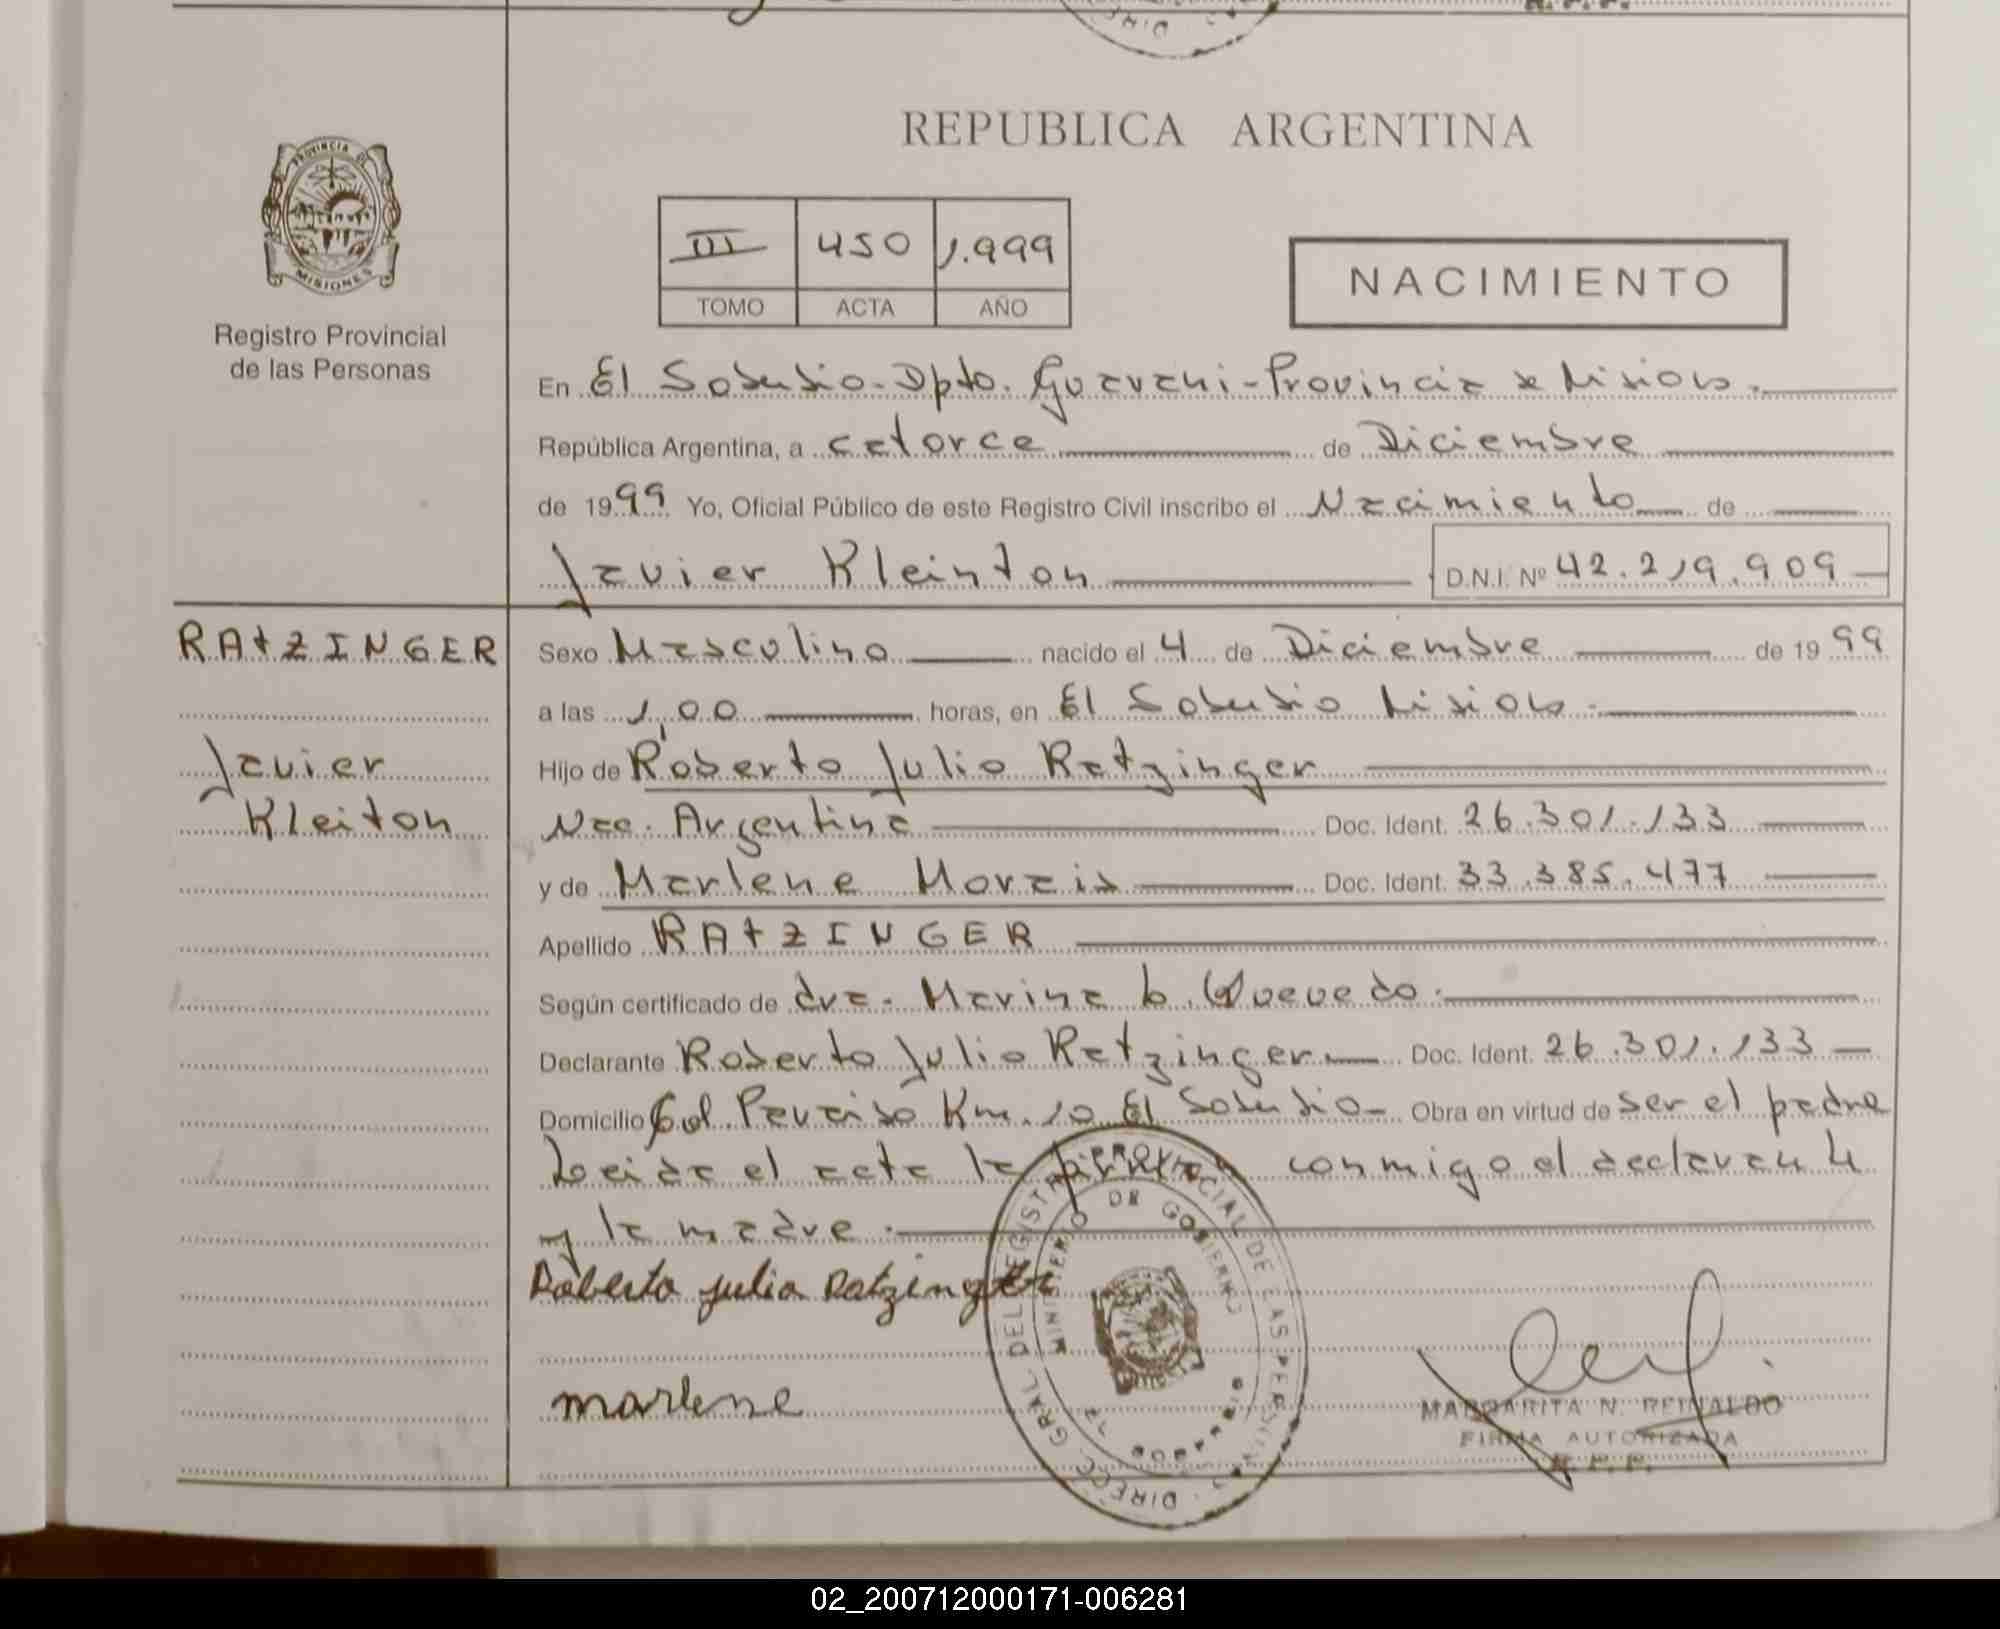 REPUBLICA ARGENTINA
PROVINCIA DE
MISIONES
Registro Provincial
de las Personas
III 450 1.999
TOMO ACTA AÑO
NACIMIENTO
En El Soberbio - Dpto. Guarani - Provincia de Misiones.
República Argentina, a catorce de Diciembre
de 1999 Yo, Oficial Público de este Registro Civil inscribo el Nacimiento de
Javier Kleinton D.N.I. Nº 42.219.909
RATZINGER
Javier
Kleiton
Sexo Masculino nacido el 4 de Diciembre de 1999
a las 1,00 horas, en El Soberbio Misiones.
Hijo de Roberto Julio Ratzinger
Nac. Argentina Doc. Ident. 26.301.133
y de Marlene Morais Doc. Ident. 33.385.477
Apellido RATZINGER
Según certificado de dra. Marina b. Quevedo.
Declarante Roberto Julio Ratzinger Doc. Ident. 26.301.133
Domicilio Col. Paraiso Km. 10 El Soberbio Obra en virtud de ser el padre
Leida el acta la firman conmigo el declarante
y la madre.
Roberto julio Ratzinger
marlene
DIRECC. GRAL. DEL REGISTRO PROVINCIAL DE LAS PERSONAS
MINISTERIO DE GOBIERNO
MARGARITA N. REINALDO
FIRMA AUTORIZADA
R.P.P.
02_200712000171-006281